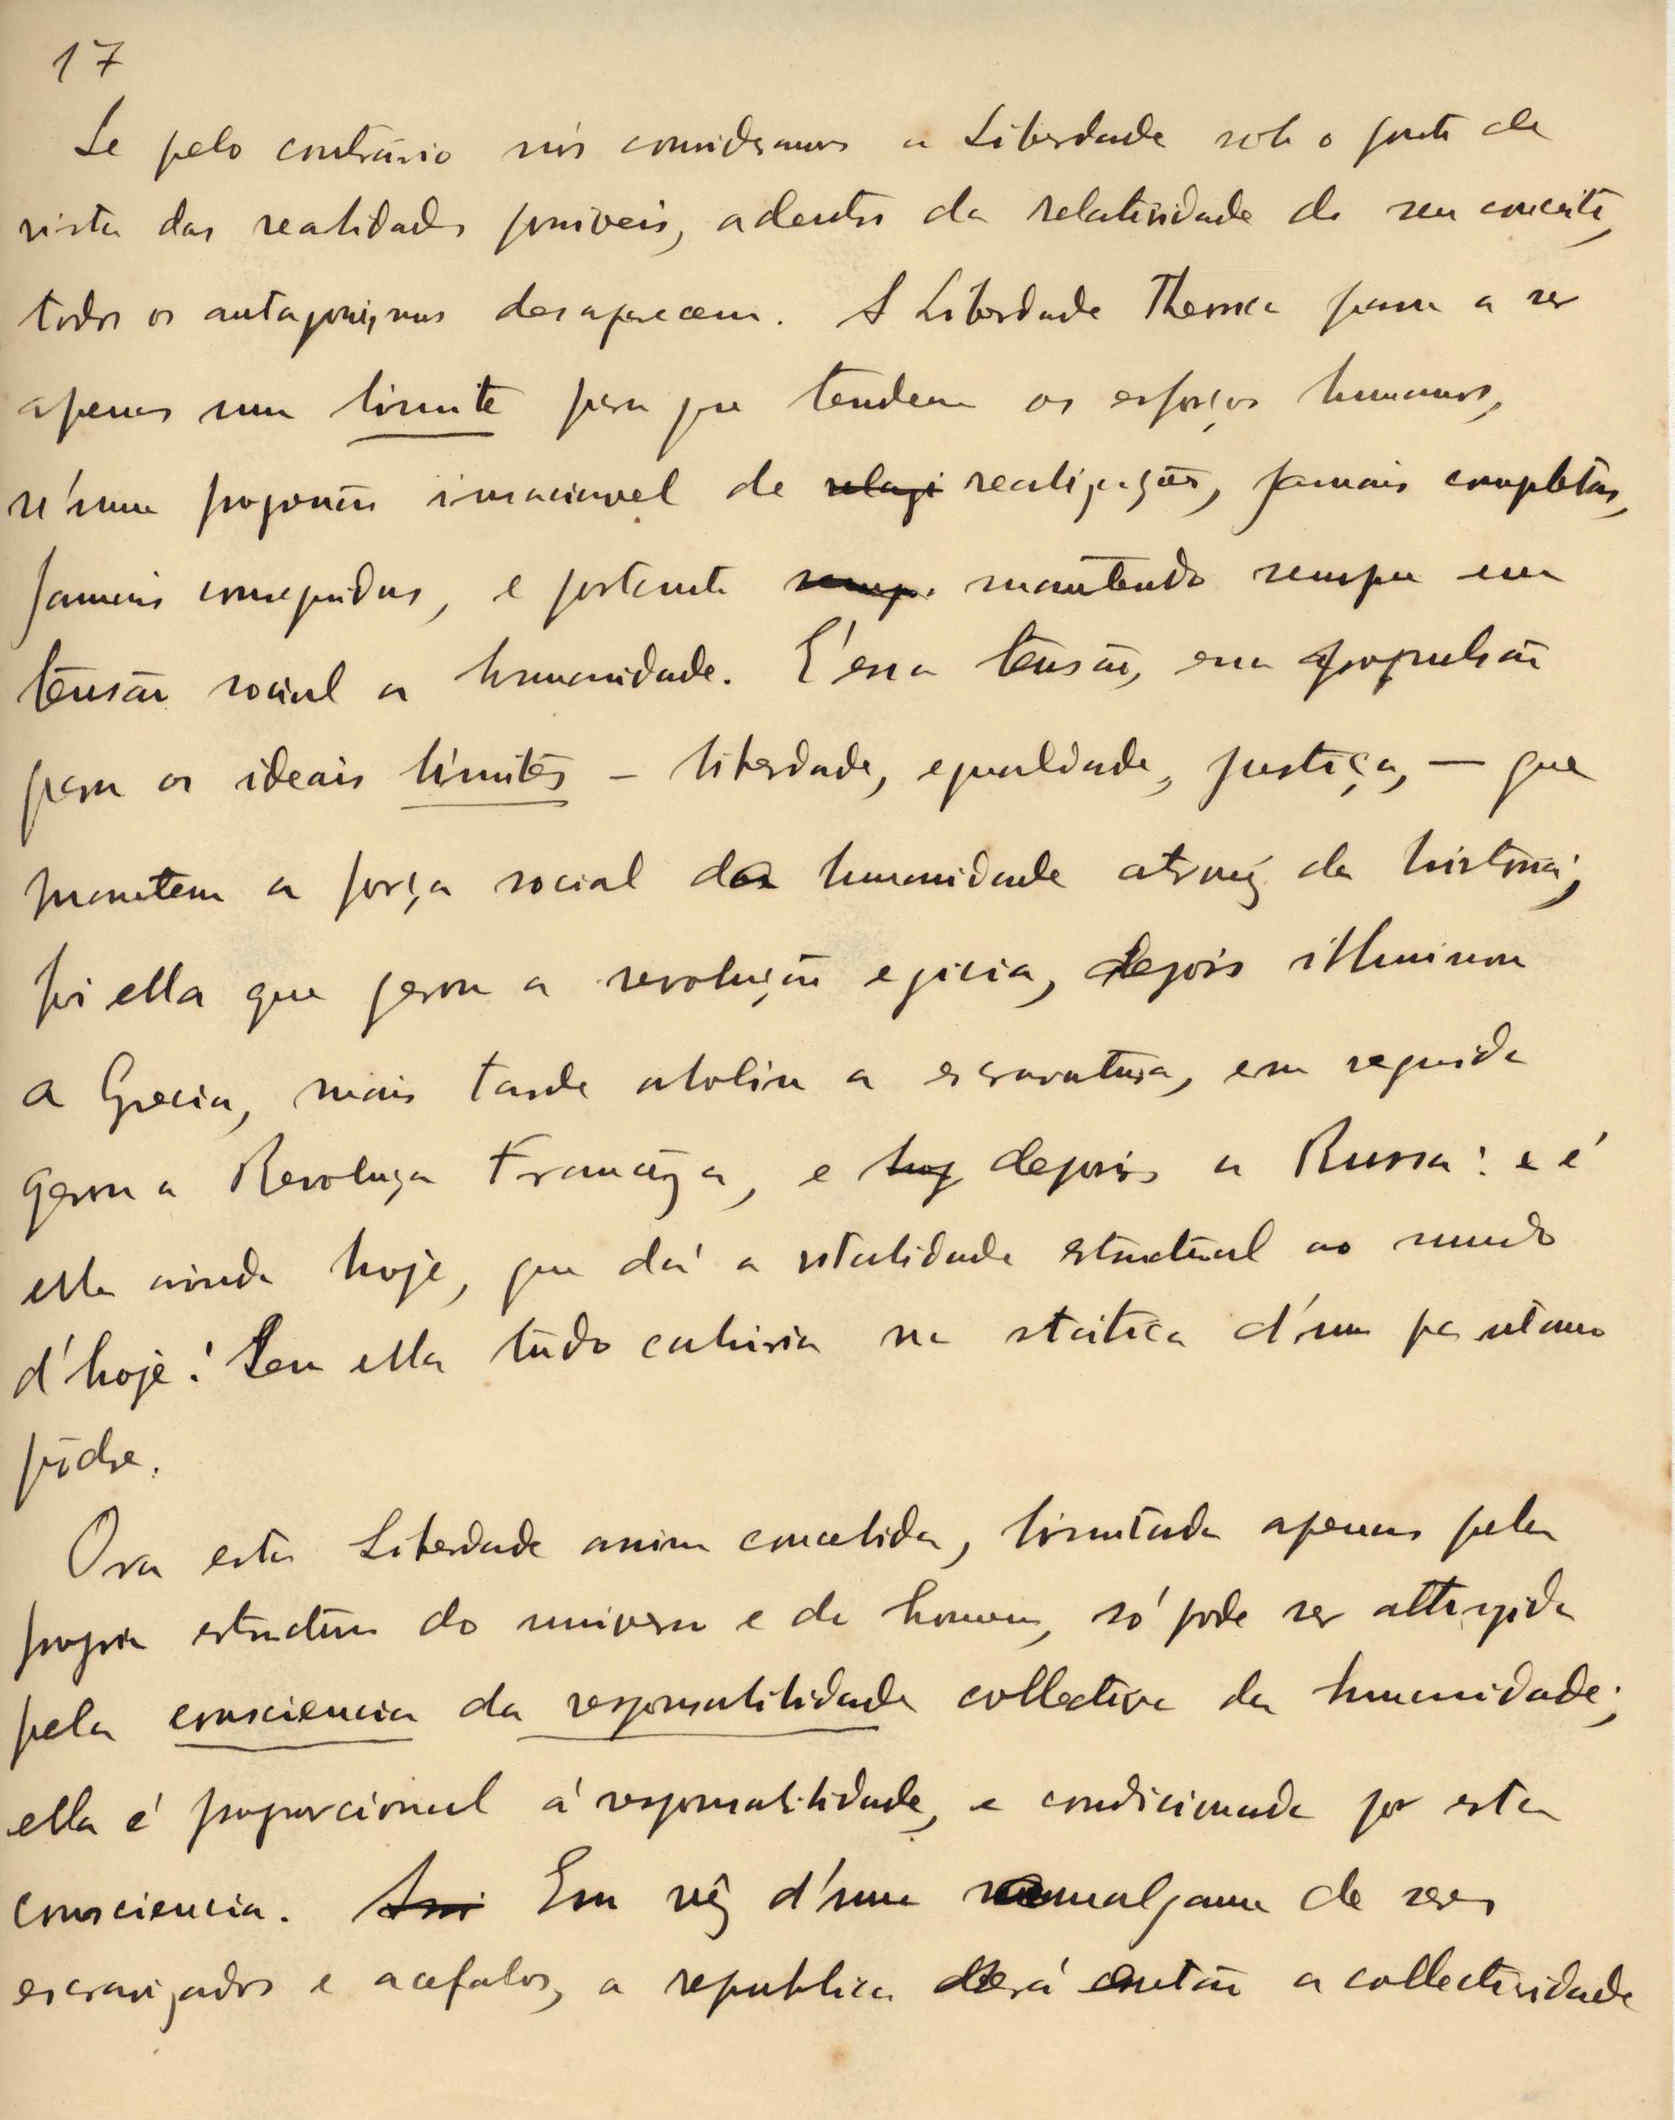 17
Se pelo contrário nós consideramos a Liberdade sob o ponto de
vista das realidades possiveis, adentro da relatividade do seu conceito,
todos os antagonismos desaparecem. A Liberdade Theorica passa a ser
apenas um limite para que tendem os esforços humanos,
n'uma proporção insaciavel de relaçi realizações, jamais completas,
jamais conseguidas, e portanto semp. mantendo sempre em
tensão social a humanidade. E' essa tensão, essa propulsão
para os ideais limites – liberdade, egualdade, justiça, — que
mantem a força social da humanidade atravez da historia;
foi ella que gerou a revolução egicia, depois illuminou
a Grecia, mais tarde aboliu a escravatura, em seguida
gerou a Revoluça Franceza, e hoj depois a Russa: e é
ella ainda hoje, que dá a vitalidade estructural ao mundo
d'hoje! Sem ella tudo cahiria na statica d'um pantano
pôdre.
Ora esta Liberdade assim concebida, limitada apenas pela
propria estructura do universo e do homem, só pode ser attingida
pela consciencia da responsabilidade collectiva da humanidade;
ella é proporcional á responsabilidade, e condicionada por esta
consciencia. Assi Em vêz d'uma amalgama de seres
escravizados e acefalos, a republica será então a collectividade